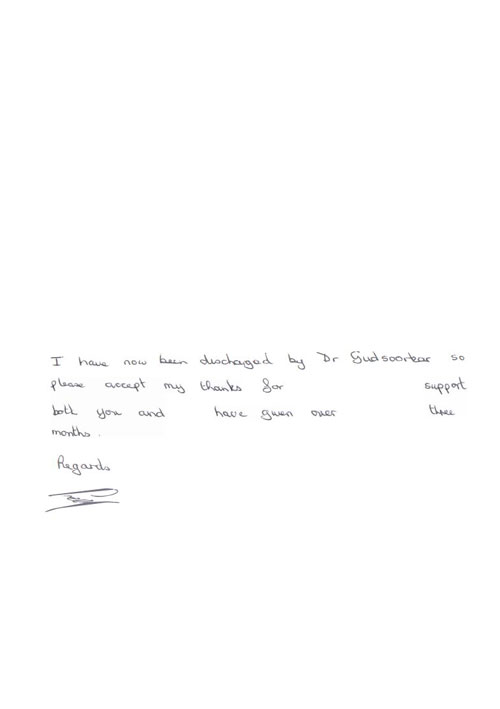 I have now been discharged by Dr Gudsoorkar so
please accept my thanks for support
both you and have given over three
months.
Regards